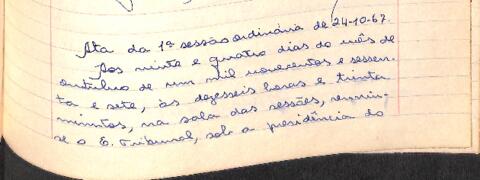 Ata da 1ª sessão ordinária de 24-10-67.
Aos vinte e quatro dias do mês de
outubro de um mil novecentos e sessen-
ta e sete, às dezesseis horas e trinta
minutos, na sala das sessões, reuniu-
se o E. Tribunal, sob a presidência do